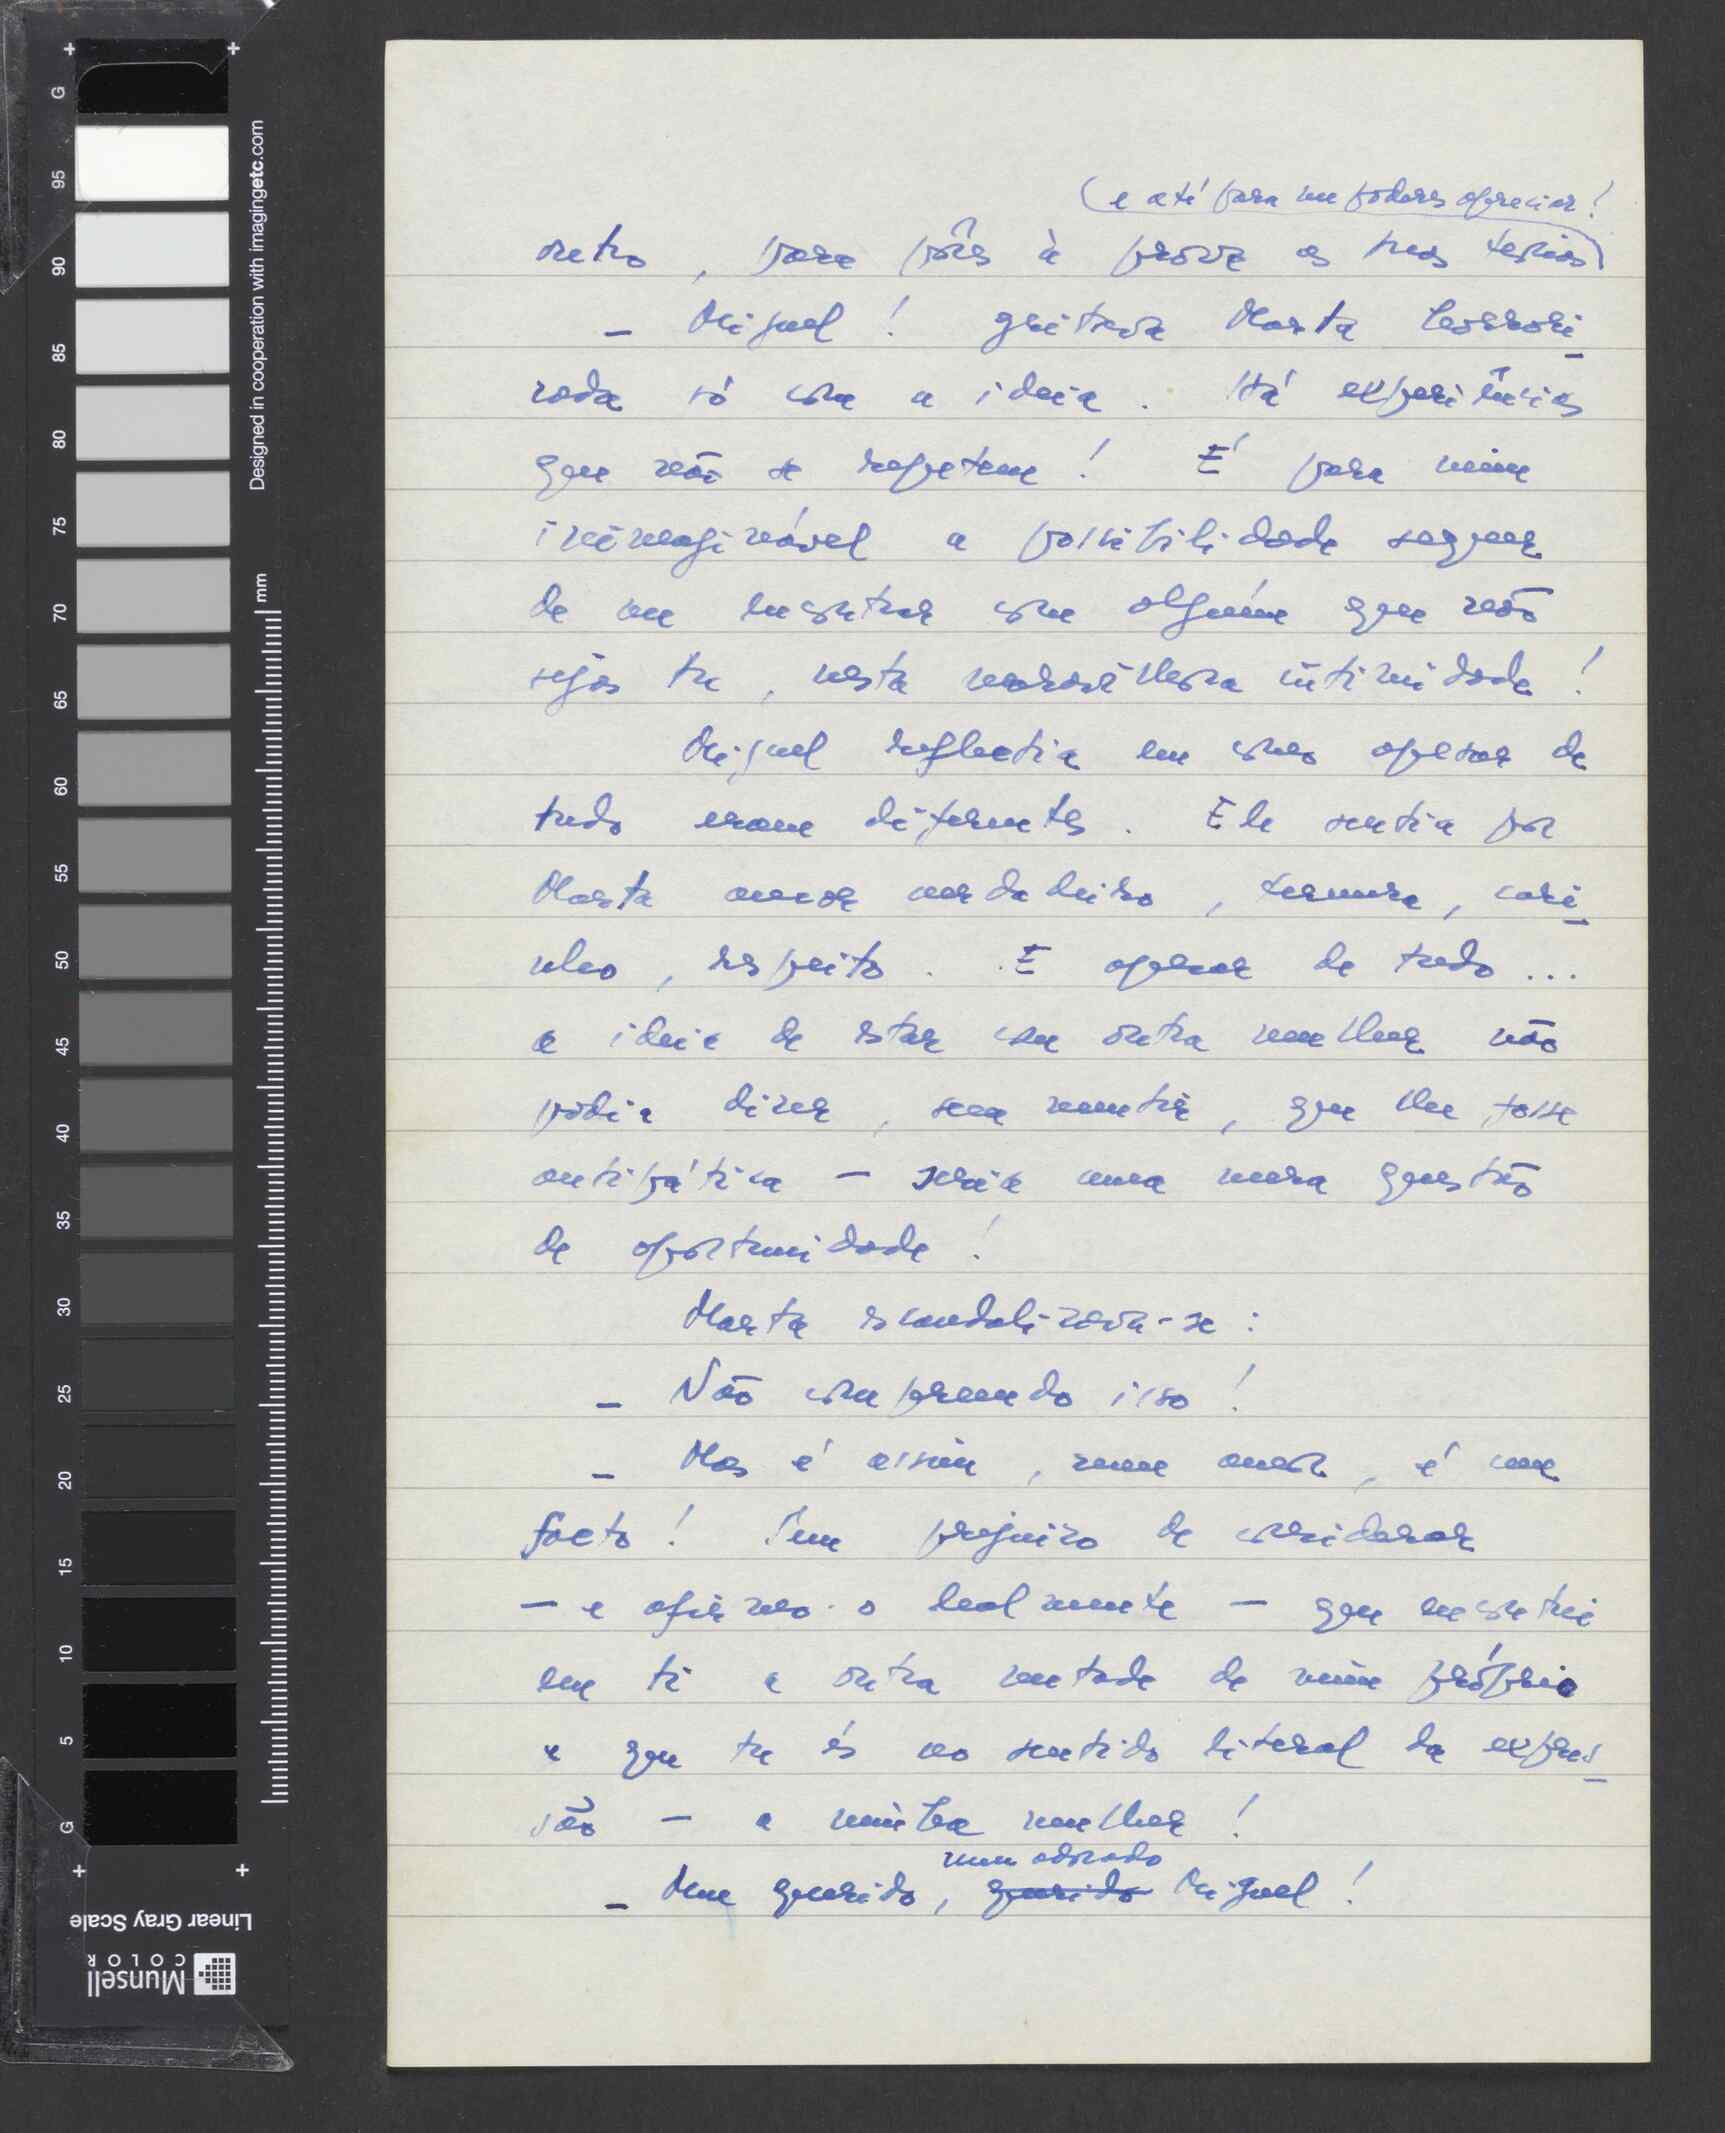 (e até para me poderes apreciar!
outro, para pôres à prova as tuas teorias)
- Miguel! gritava Marta horrori-
zada só com a ideia. Há experiências
que não se repetem! É para mim
inimaginável a possibilidade sequer
de me encontrar com alguém que não
sejas tu, nesta maravilhosa intimidade!
Miguel reflectia em como apesar de
tudo eram diferentes. Ele sentia por
Marta amor verdadeiro, ternura, cari-
nho, respeito. E apesar de tudo...
a ideia de estar com outra mulher não
podia dizer, sem mentir, que lhe fosse
antipática - seria uma mera questão
de oportunidade!
Marta escandalizava-se:
- Não compreendo isso!
- Mas é assim, meu amor, é um
facto! Sem prejuízo de considerar
- e afirmo-o lealmente - que encontrei
em ti a outra metade de mim próprio
e que tu és no sentido literal da expres-
são - a minha mulher!
meu adorado
- Meu querido, querido Miguel!
G
95
90
85
80
75
70
65
60
55
50
45
40
35
30
25
20
15
10
5
G
Designed in cooperation with imagingetc.com
mm
Linear Gray Scale
Munsell
COLOR